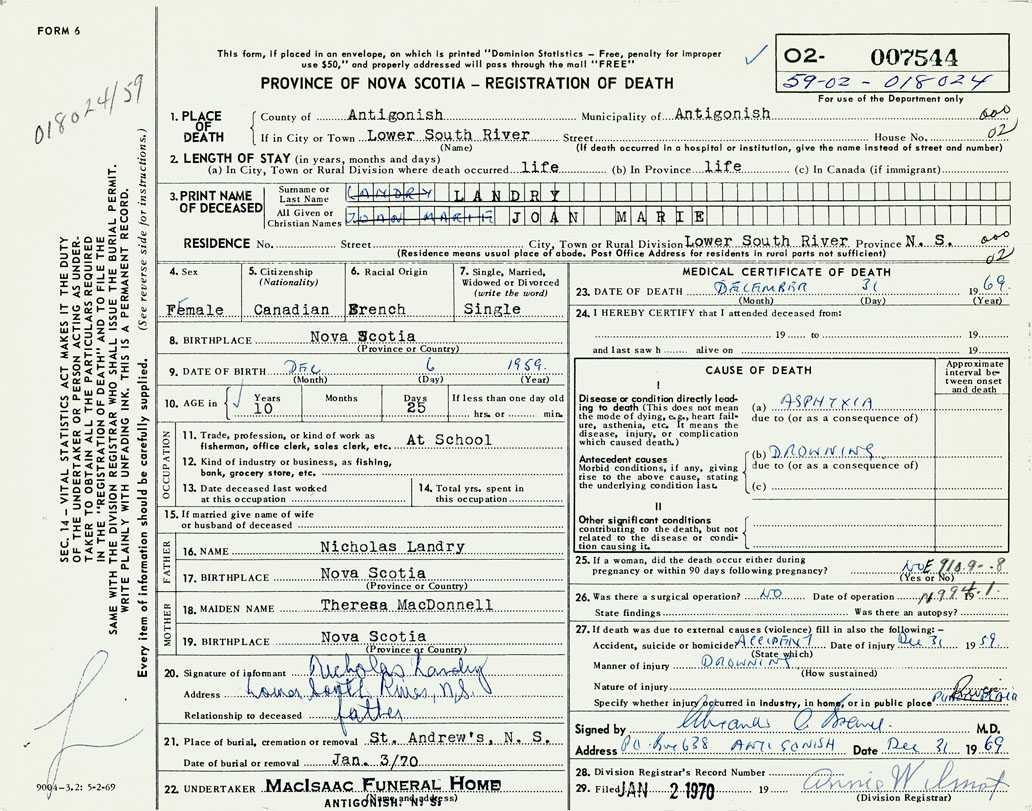 FORM 6
018024/59
This form, if placed in an envelope, on which is printed "Dominion Statistics – Free, penalty for improper
use $50," and properly addressed will pass through the mail "FREE"
PROVINCE OF NOVA SCOTIA – REGISTRATION OF DEATH
02- 007544
59-02-018024
For use of the Department only
SEC. 14 – VITAL STATISTICS ACT MAKES IT THE DUTY
OF THE UNDERTAKER OR PERSON ACTING AS UNDER-
TAKER TO OBTAIN ALL THE PARTICULARS REQUIRED
IN THE "REGISTRATION OF DEATH" AND TO FILE THE
SAME WITH THE DIVISION REGISTRAR WHO SHALL ISSUE THE BURIAL PERMIT.
WRITE PLAINLY WITH UNFADING INK. THIS IS A PERMANENT RECORD.
Every item of information should be carefully supplied. (See reverse side for instructions.)
1. PLACE OF DEATH
County of Antigonish Municipality of Antigonish 000
If in City or Town Lower South River Street House No. 02
(Name) (If death occurred in a hospital or institution, give the name instead of street and number)
2. LENGTH OF STAY (in years, months and days)
(a) In City, Town or Rural Division where death occurred life (b) In Province life (c) In Canada (if immigrant)
3. PRINT NAME OF DECEASED
Surname or Last Name LANDRY LANDRY
All Given or Christian Names JOAN MARIE JOAN MARIE
RESIDENCE No. Street City, Town or Rural Division Lower South River Province N. S. 000
(Residence means usual place of abode. Post Office Address for residents in rural parts not sufficient) 02
4. Sex Female
5. Citizenship (Nationality) Canadian
6. Racial Origin French
7. Single, Married, Widowed or Divorced (write the word) Single
8. BIRTHPLACE Nova Scotia
(Province or Country)
9. DATE OF BIRTH DEC 6 1959.
(Month) (Day) (Year)
10. AGE in Years 10 Months Days 25 If less than one day old hrs. or min.
OCCUPATION
11. Trade, profession, or kind of work as fisherman, office clerk, sales clerk, etc. At School
12. Kind of industry or business, as fishing, bank, grocery store, etc.
13. Date deceased last worked at this occupation
14. Total yrs. spent in this occupation
15. If married give name of wife or husband of deceased
FATHER
16. NAME Nicholas Landry
17. BIRTHPLACE Nova Scotia
(Province or Country)
MOTHER
18. MAIDEN NAME Theresa MacDonnell
19. BIRTHPLACE Nova Scotia
(Province or Country)
20. Signature of informant Nicholas Landry
Address Lower South River, N.S.
Relationship to deceased father
21. Place of burial, cremation or removal St. Andrew's, N. S.
Date of burial or removal Jan. 3/70
22. UNDERTAKER MACISAAC FUNERAL HOME
(Name and address)
ANTIGONISH, N. S.
9004-3.2: 5-2-69
MEDICAL CERTIFICATE OF DEATH
23. DATE OF DEATH DECEMBER 31 1969.
(Month) (Day) (Year)
24. I HEREBY CERTIFY that I attended deceased from:
19 to 19
and last saw h alive on 19
CAUSE OF DEATH
Approximate interval between onset and death
I
Disease or condition directly leading to death (This does not mean the mode of dying, e.g., heart failure, asthenia, etc. It means the disease, injury, or complication which caused death.)
(a) ASPHYXIA
due to (or as a consequence of)
Antecedent causes
Morbid conditions, if any, giving rise to the above cause, stating the underlying condition last.
(b) DROWNING
due to (or as a consequence of)
(c)
II
Other significant conditions contributing to the death, but not related to the disease or condition causing it.
25. If a woman, did the death occur either during pregnancy or within 90 days following pregnancy? NO E910.9--8
(Yes or No)
26. Was there a surgical operation? NO Date of operation 19 N994.1
State findings Was there an autopsy?
27. If death was due to external causes (violence) fill in also the following: –
Accident, suicide or homicide? ACCIDENT Date of injury Dec 31 1959
(State which)
Manner of injury DROWNING
(How sustained)
Nature of injury
Specify whether injury occurred in Industry, in home, or in public place River
Signed by M.D.
Address PO Box 638 ANTIGONISH Date Dec 31 1969
28. Division Registrar's Record Number
29. Filed JAN 2 1970 19 Annie Wilmot
(Division Registrar)